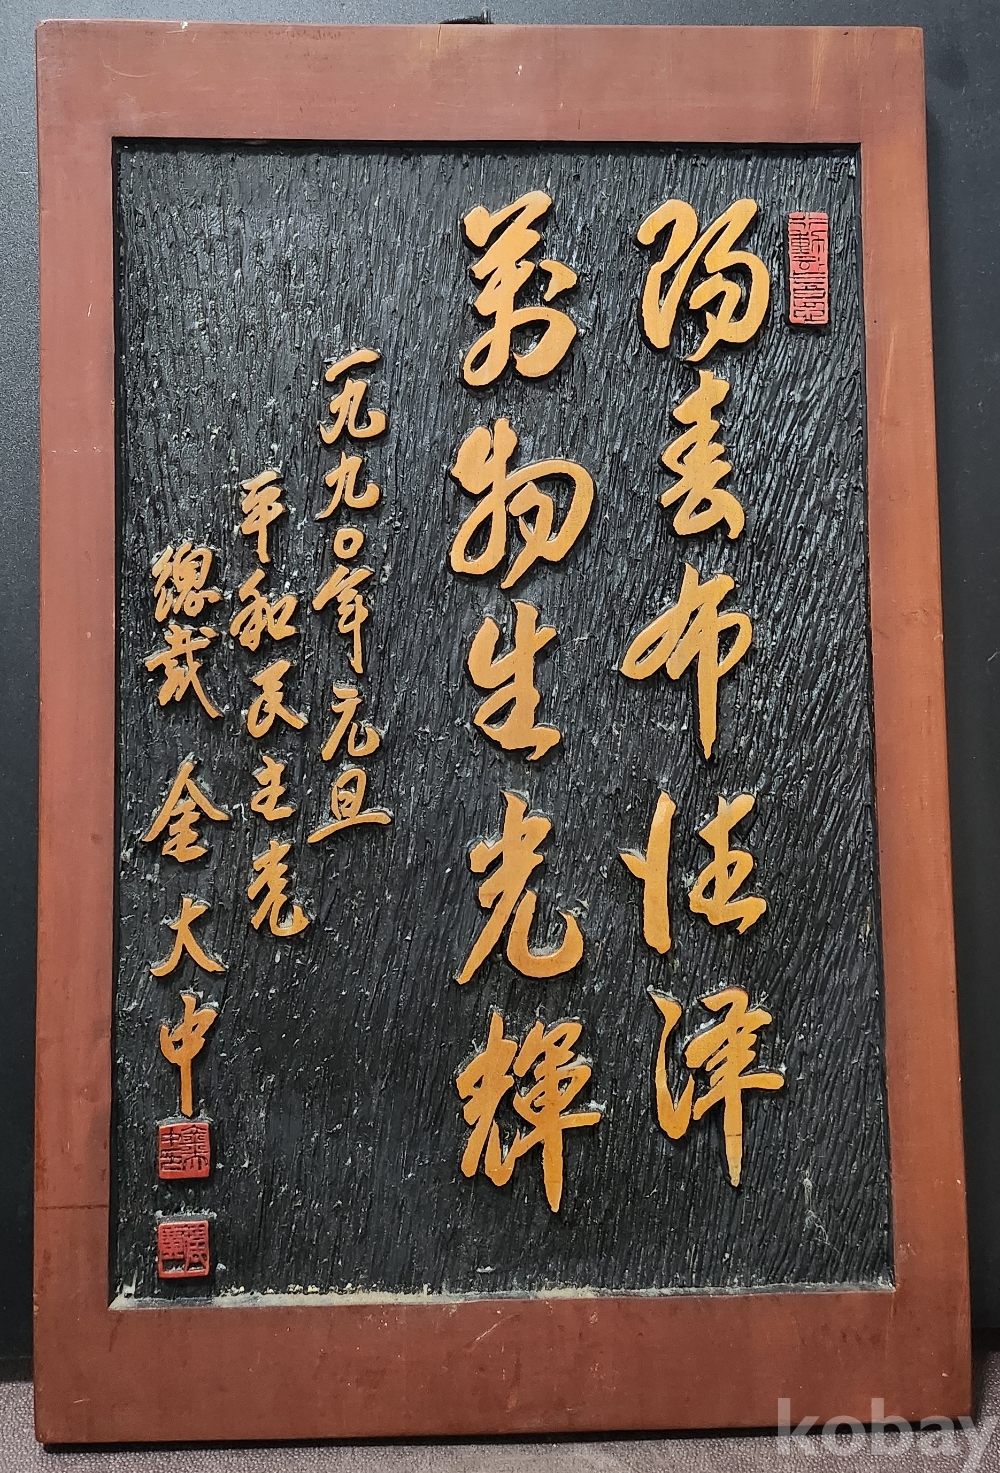 陽春布德澤
萬物生光輝
一九九〇年 元旦
平和民主党
總裁 金大中
kobay